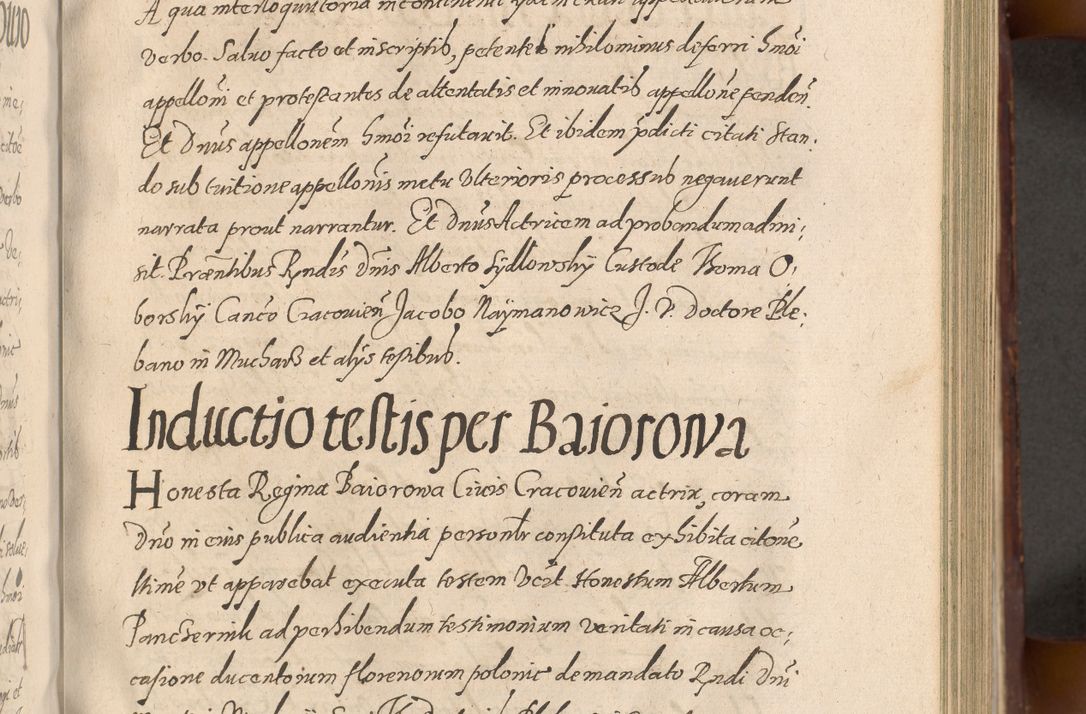 A qua interloquutoria incontinenti
verbo. Saluo facto et inscriptis, petentes nihilominus deferri hmõi
appelloni et protestantes de attentatis et innouatis appellone penden.
Et Dnus appellonem hmõi refutauit. Et ibidem pdicti citati stan,
do sub tuitione appellonis metu vlterioris processus negauerunt
narrata prout narrantur. Et Dnus Actricem ad probandum admi,
sit. Præntibus Rndis Dnis Alberto Sydlowsky Custode Thoma O,
borsky Canco Cracouien Jacobo Naymanowicz J. V. Doctore Ple,
bano in Mucharz et alys testibus.
Inductio testis per Baiorowa
Honesta Regina Baiorowa Ciuis Cracouien actrix, coram
Dno in eius publica audientia personlr constituta exhibita citone
ltime vt apparebat executa testem vcit Honestum Albertum
Panchernik ad perhibendum testimonium veritati in causa oc,
casione ducentorum florenorum polonic de mandato Rndi Dni